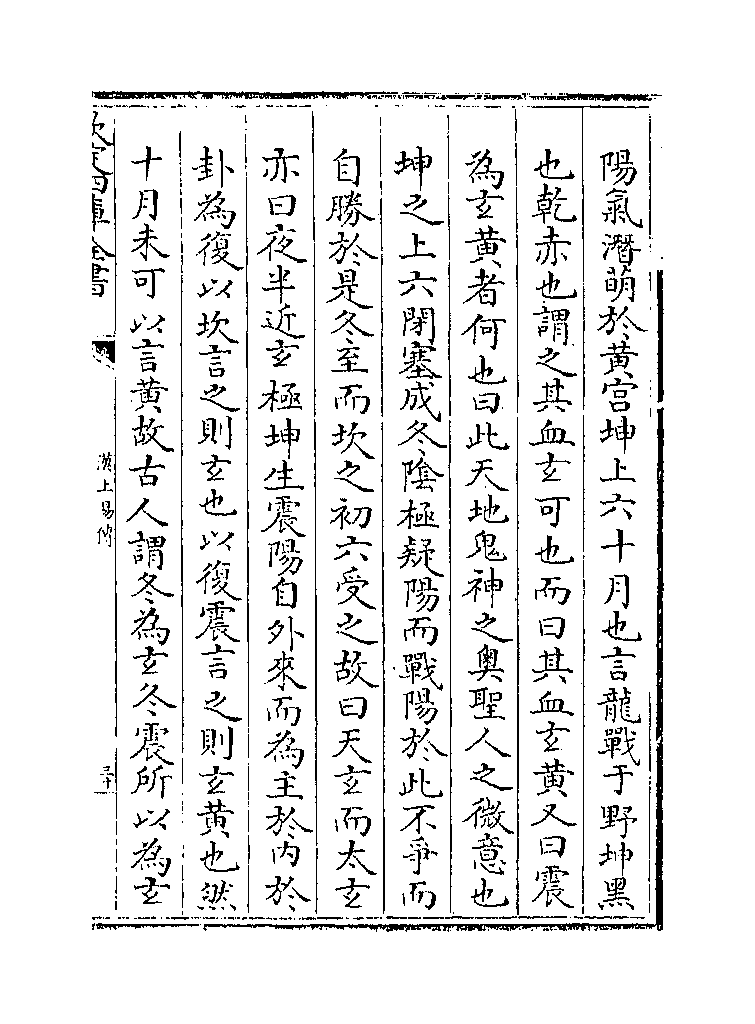 陽氣潛萌於黃宫坤上六十月也言龍戰于野坤黑
也乾赤也謂之其血玄可也而曰其血玄黃又曰震
為玄黃者何也曰此天地鬼神之奥聖人之微意也
坤之上六閉塞成冬陰極疑陽而戰陽於此不爭而
自勝於是冬至而坎之初六受之故曰天玄而太玄
亦曰夜半近玄極坤生震陽自外來而為主於内於
卦為復以坎言之則玄也以復震言之則玄黃也然
十月未可以言黃故古人謂冬為玄冬震所以為玄
欽定四庫全書
漢上易傳